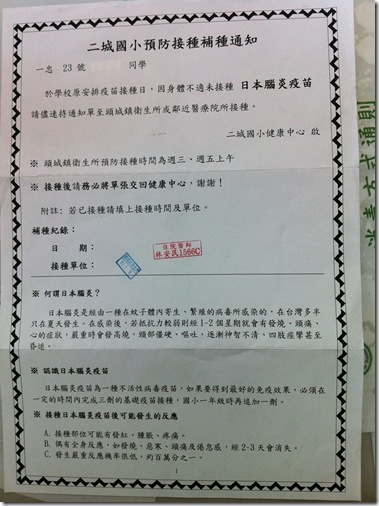 二城國小預防接種補種通知
一忠 23 號 同學
於學校原安排疫苗接種日，因身體不適未接種 日本腦炎疫苗
請儘速持通知單至頭城鎮衛生所或鄰近醫療院所接種。
二城國小健康中心 啟
※ 頭城鎮衛生所預防接種時間為週三、週五上午
※ 接種後請務必將單張交回健康中心，謝謝！
附註：若已接種請填上接種時間及單位。
補種紀錄：
日 期：
接種單位：
住院醫師
林安民1566C
※ 何謂日本腦炎？
日本腦炎是經由一種在蚊子體內寄生、繁殖的病毒所感染的，在台灣多半
只在夏天發生。在感染後，若抵抗力較弱則經 1-2 個星期就會有發燒、頭痛、
心的症狀，嚴重時會發高燒，頸部僵硬、嘔吐，逐漸神智不清、四肢痙攣甚至
昏迷。
※ 認識日本腦炎疫苗
日本腦炎疫苗為一種不活性病毒疫苗，如果要得到最好的免疫效果，必須在
一定的時間內完成三劑的基礎疫苗接種，國小一年級時再追加一劑。
※ 接種日本腦炎疫苗後可能發生的反應
A. 接種部位可能有發紅、腫脹、疼痛。
B. 偶有全身反應，如發燒、惡寒、頭痛及倦怠感，經 2-3 天會消失。
C. 發生嚴重反應機率很低，約百萬分之一。
1